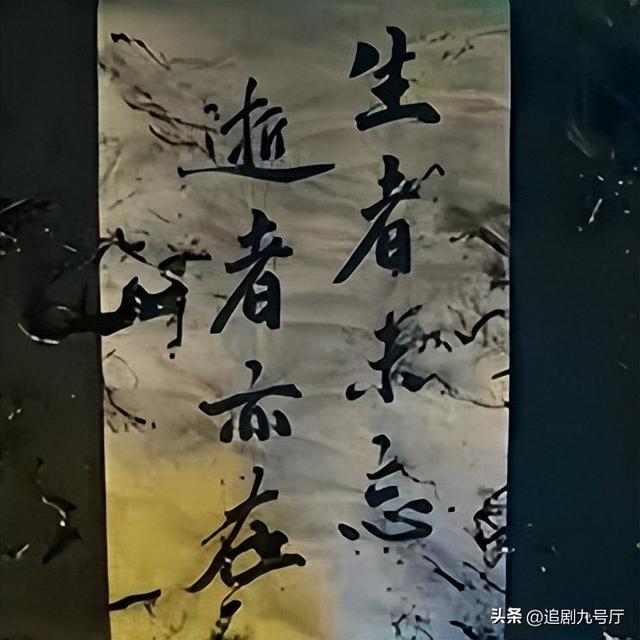 生者未忘
逝者亦在
头条 @追剧九号厅